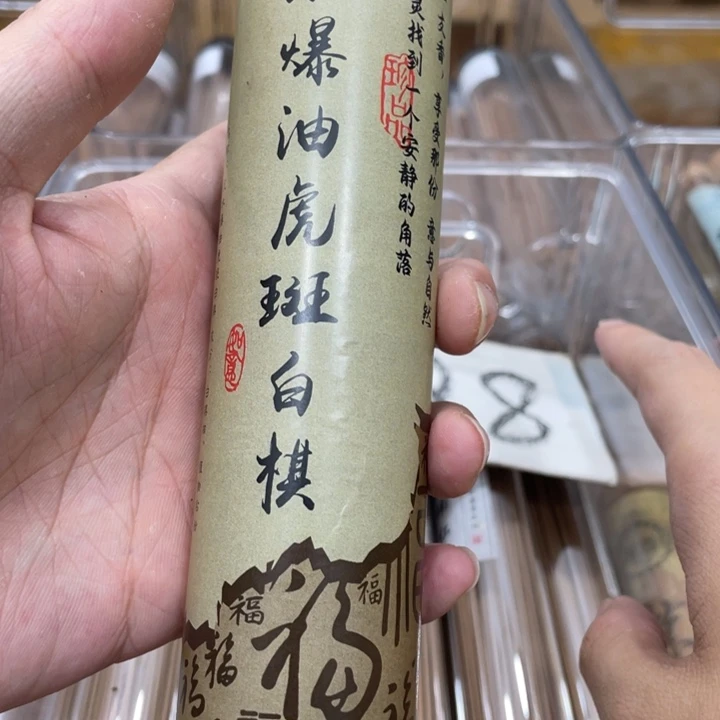 爆油虎斑白棋
灵找到一个安静的角落
支香，享受那份 意与自然
珍品
如意
88
福
福
福
福
福